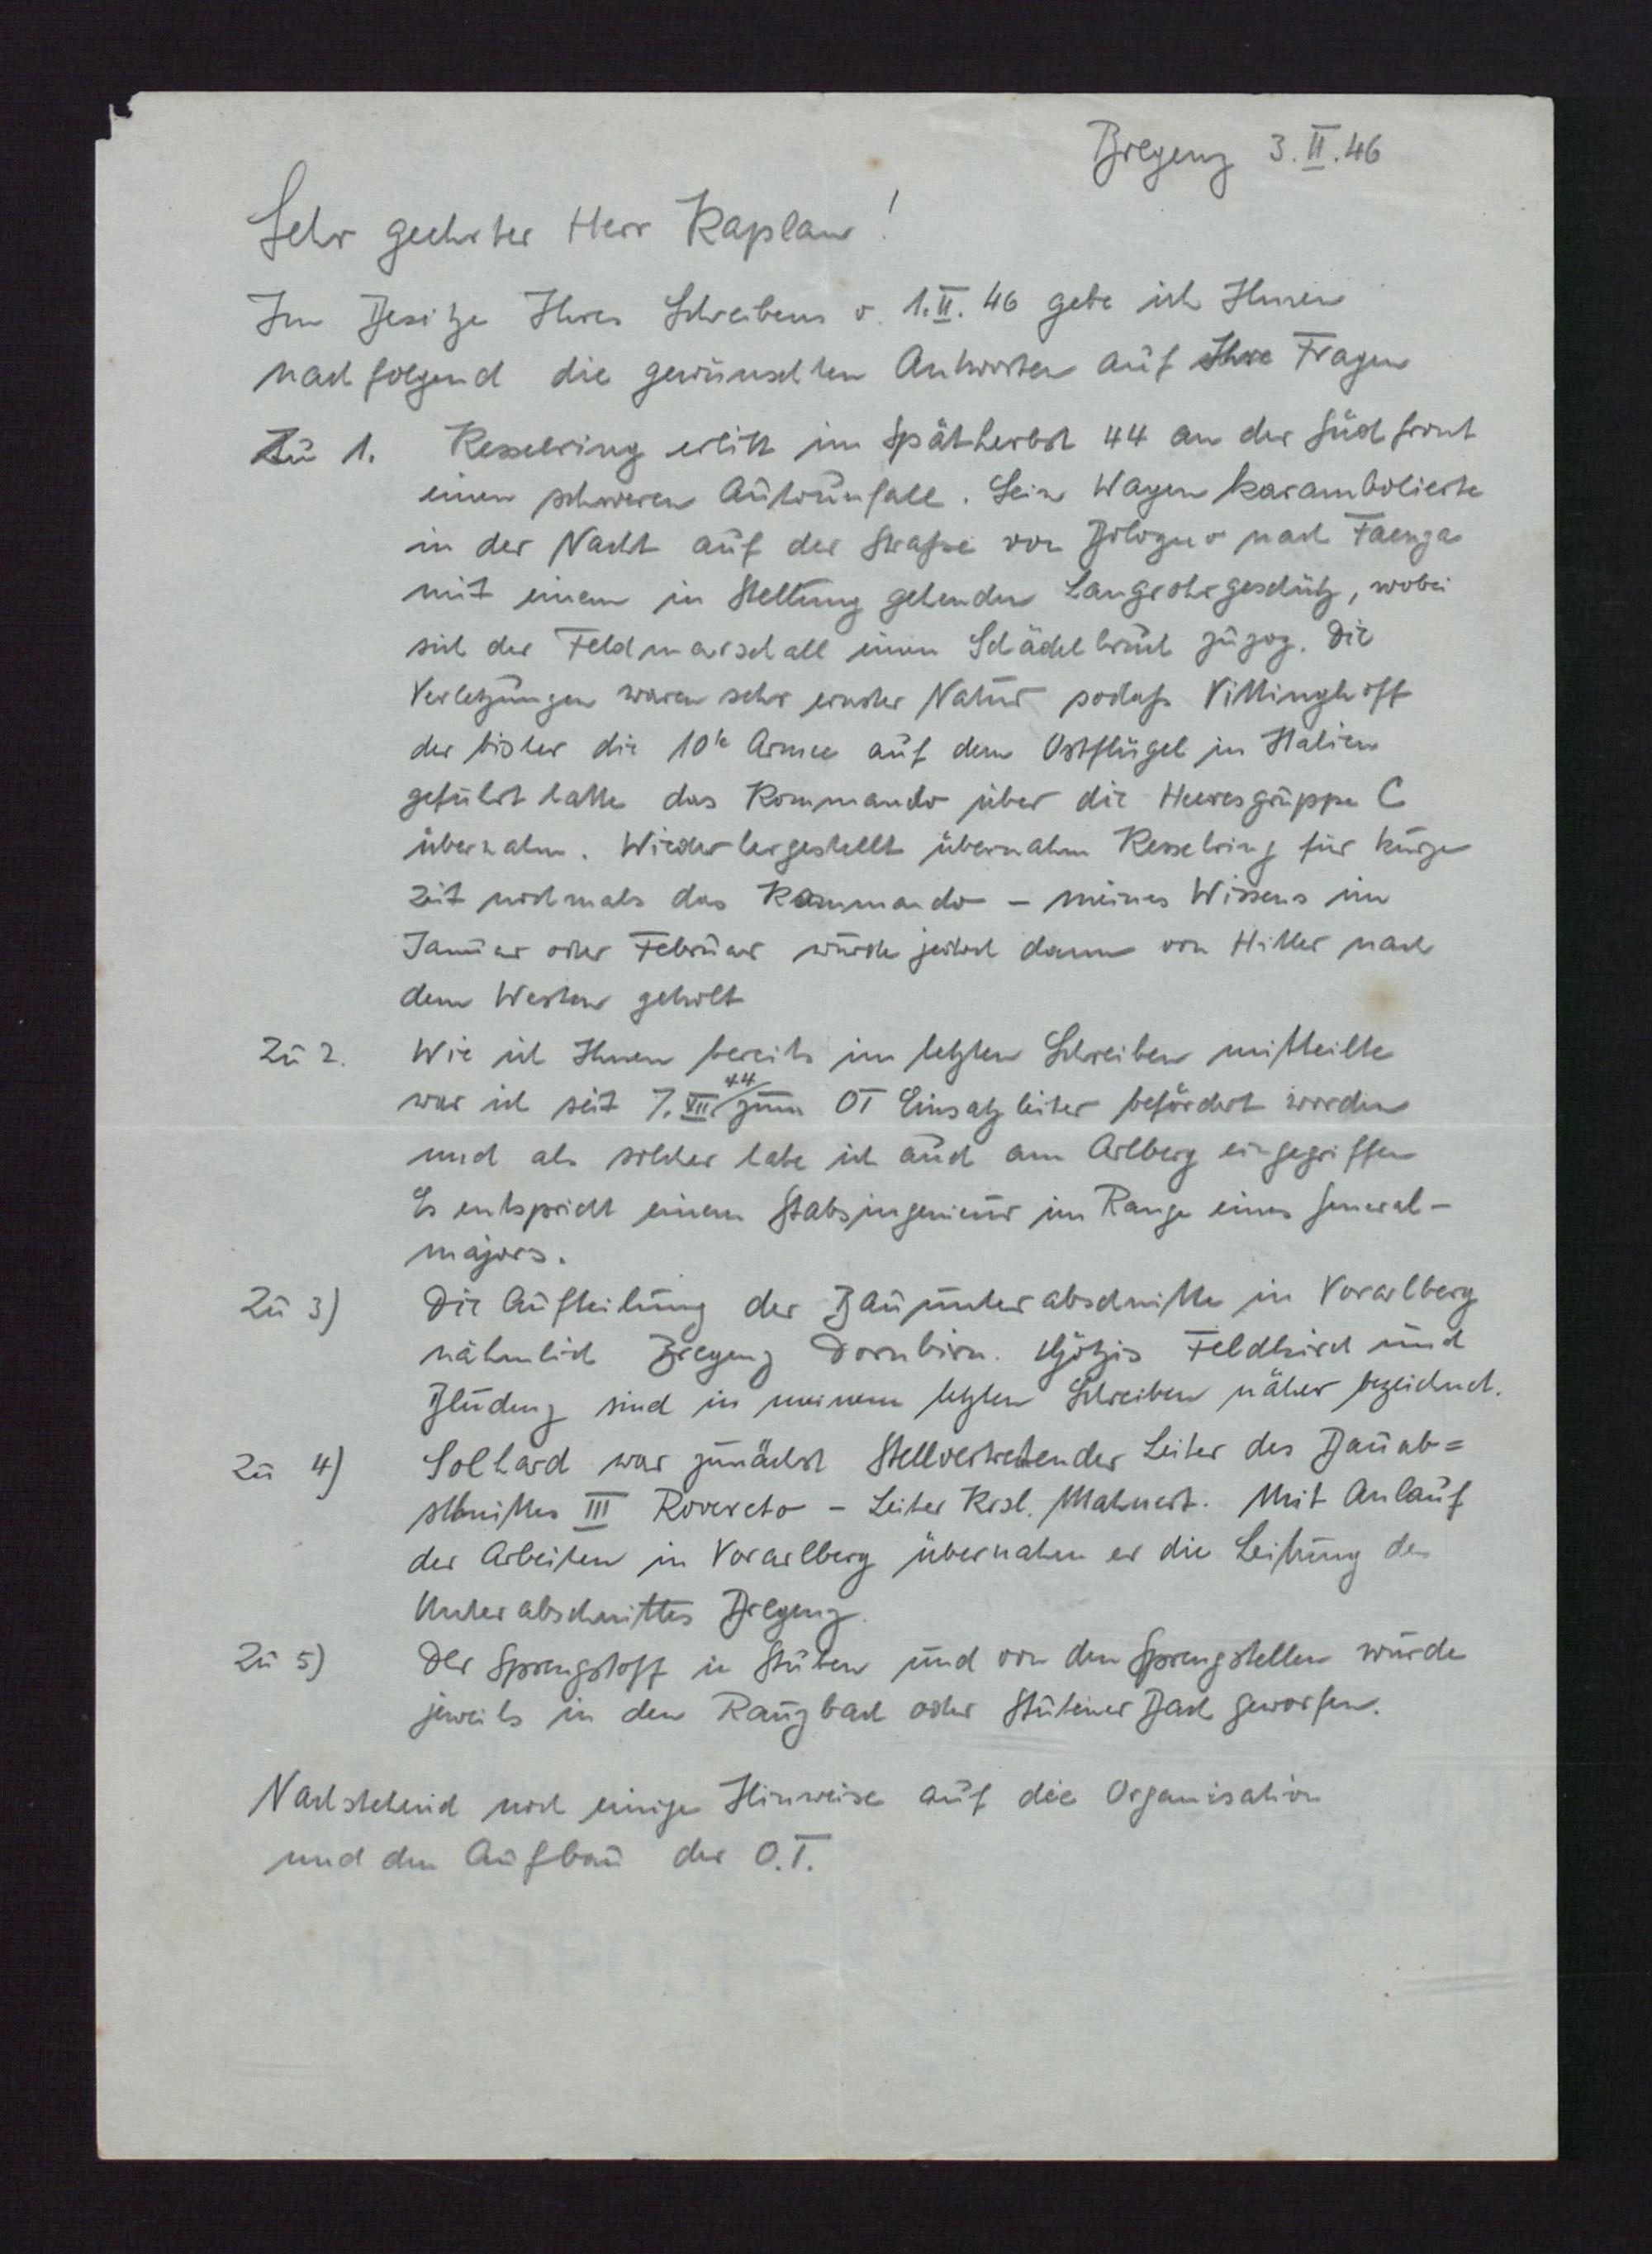 Bregenz 3.II.46
Sehr geehrter Herr Kaplan!
Im Besitze Ihres Schreibens v. 1.II.46 gebe ich Ihnen
nachfolgend die gewünschten Antworten auf Ihre Fragen
Zu 1. Kesselring erlitt im Spätherbst 44 an der Südfront
einen schweren Autounfall. Sein Wagen karambolierte
in der Nacht auf der Straße von Bologno nach Faenza
mit einem in Stellung gehenden Langrohrgeschütz, wobei
sich der Feldmarschall einen Schädelbruch zuzog. Die
Verletzungen waren sehr ernster Natur sodaß Vittinghoff
der bisher die 10te Armee auf dem Ostflügel in Italien
geführt hatte das Kommando über die Heeresgruppe C
übernahm. Wiederhergestellt übernahm Kesselring für kurze
Zeit nochmals das Kommando - meines Wissens im
Januar oder Februar wurde jedoch dann von Hitler nach
dem Westen geholt
Zu 2. Wie ich Ihnen bereits im letzten Schreiben mitteilte
war ich seit 7.VII. 44 zum OT Einsatzleiter befördert worden
und als solcher habe ich auch am Arlberg eingegriffen
Es entspricht einem Stabsingenieur im Range eines General-
majors.
Zu 3) Die Aufteilung der Bauunterabschnitte in Vorarlberg
nähmlich Bregenz Dornbirn. Götzis Feldkirch und
Bludenz sind in meinem letzten Schreiben näher bezeichnet.
Zu 4) Solhard war zunächst Stellvertretender Leiter des Bauab=
schnittes III Rovereto - Leiter Krsl. Mahnert. Mit Anlauf
der Arbeiten in Vorarlberg übernahm er die Leitung des
Unterabschnittes Bregenz.
Zu 5) Der Sprengstoff in Stuben und von den Sprengstellen wurde
jeweils in den Rauzbach oder Stubener Bach geworfen.
Nachstehend noch einige Hinweise auf die Organisation
und den Aufbau der O.T.